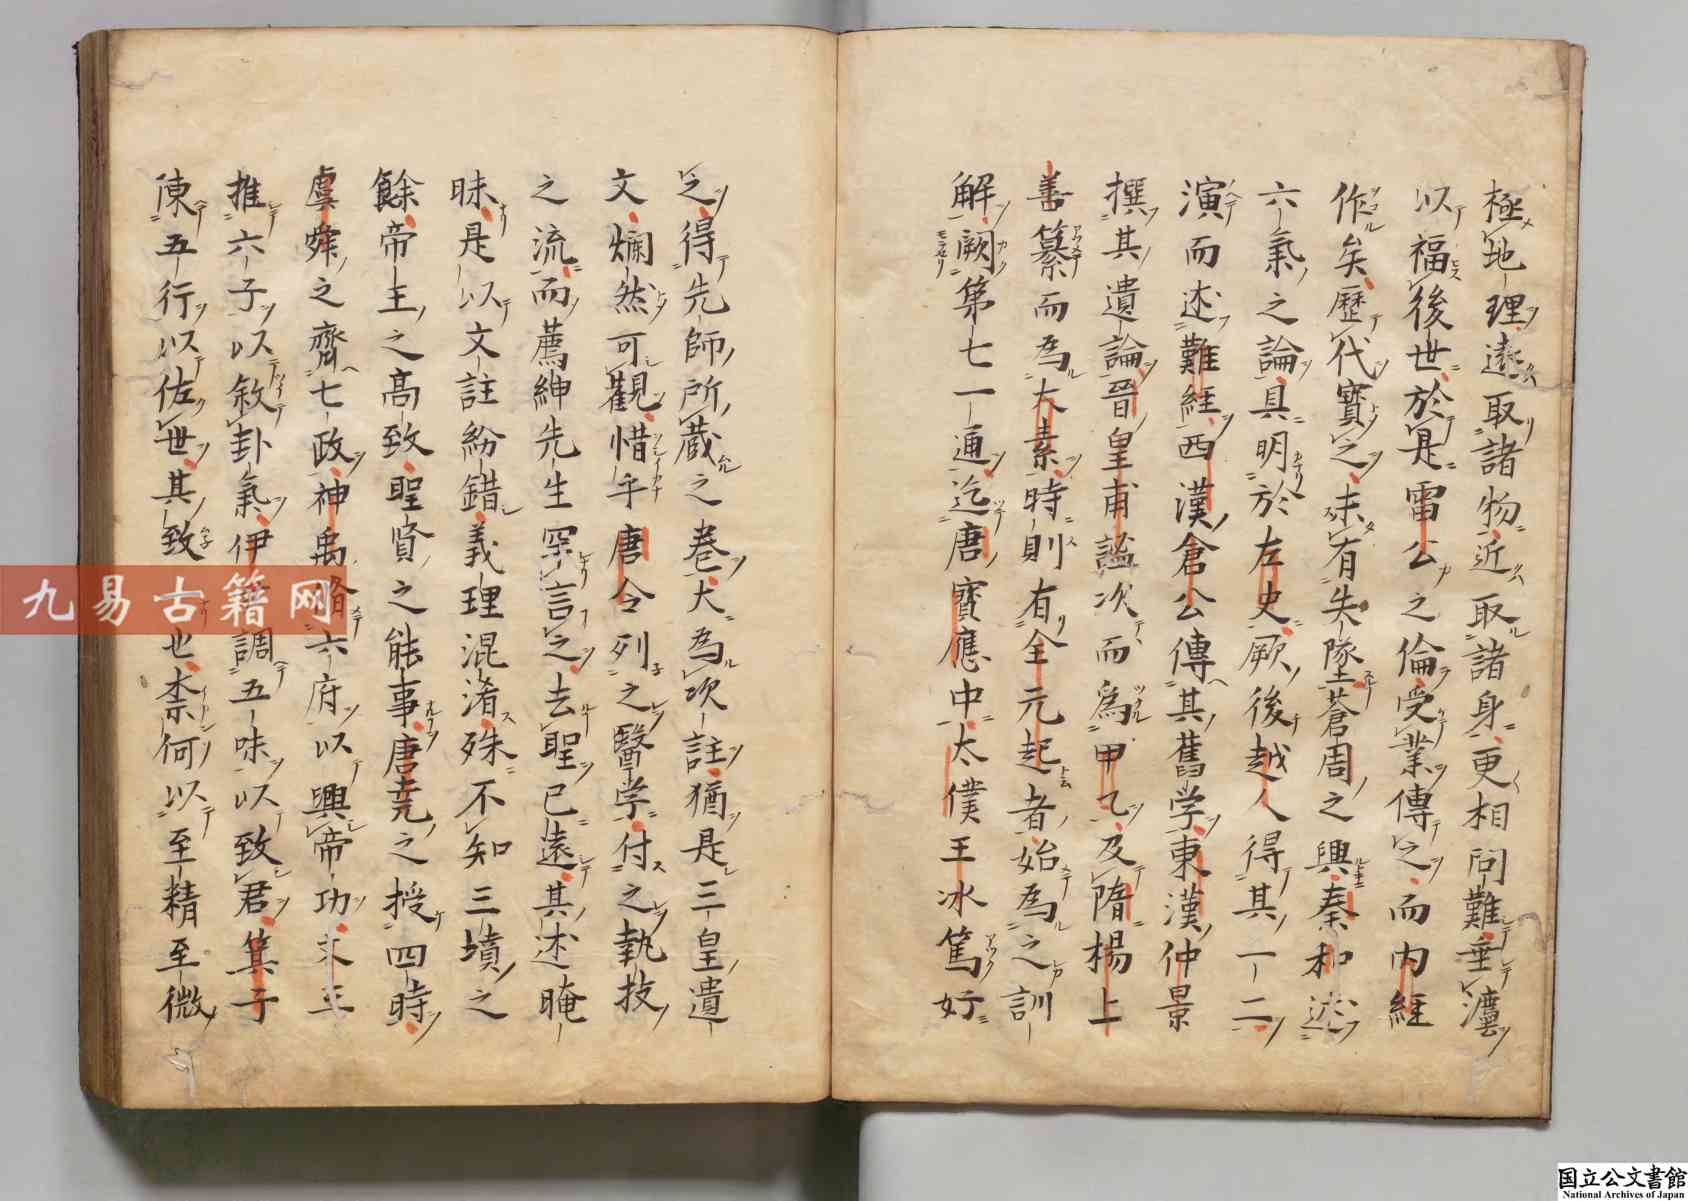 極地理遠取諸物近取諸身更相問難垂灋
以福後世於是雷公之倫受業傳之而内經
作矣歷代寶之未有失墜蒼周之興秦和述
六氣之論具明於左史厥後越人得其一二
演而述難經西漢倉公傳其舊学東漢仲景
撰其遺論晉皇甫謐次而為甲乙及隋楊上
善纂而為太素時則有全元起者始為之訓
解闕第七一通迄唐寶應中太僕王冰篤好
之得先師所蔵之卷大為次註猶是三皇遺
文爛然可觀惜乎唐令列之醫学付之執技
之流而薦紳先生罕言之去聖已遠其述晻
昧是以文註紛錯義理混淆殊不知三墳之
餘帝王之高致聖賢之能事唐堯之授四時
虞舜之齊七政神禹脩六府以興帝功文王
推六子以敘卦氣伊調五味以致君箕子
陳五行以佐世其致一也柰何以至精至微
九易古籍网
国立公文書館
National Archives of Japan